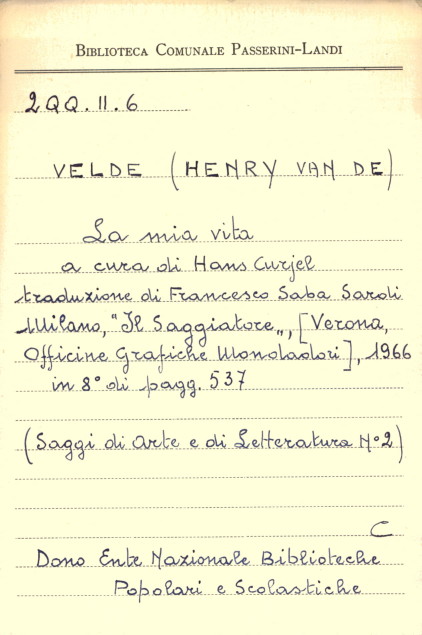 BIBLIOTECA COMUNALE PASSERINI-LANDI
2QQ.II.6
VELDE (HENRY VAN DE)
La mia vita
a cura di Hans Curjel
traduzione di Francesco Saba Sardi
Milano, "Il Saggiatore", [Verona,
Officine Grafiche Mondadori], 1966
in 8° di pagg. 537
(Saggi di Arte e di Letteratura N°2)
C
Dono Ente Nazionale Biblioteche
Popolari e Scolastiche